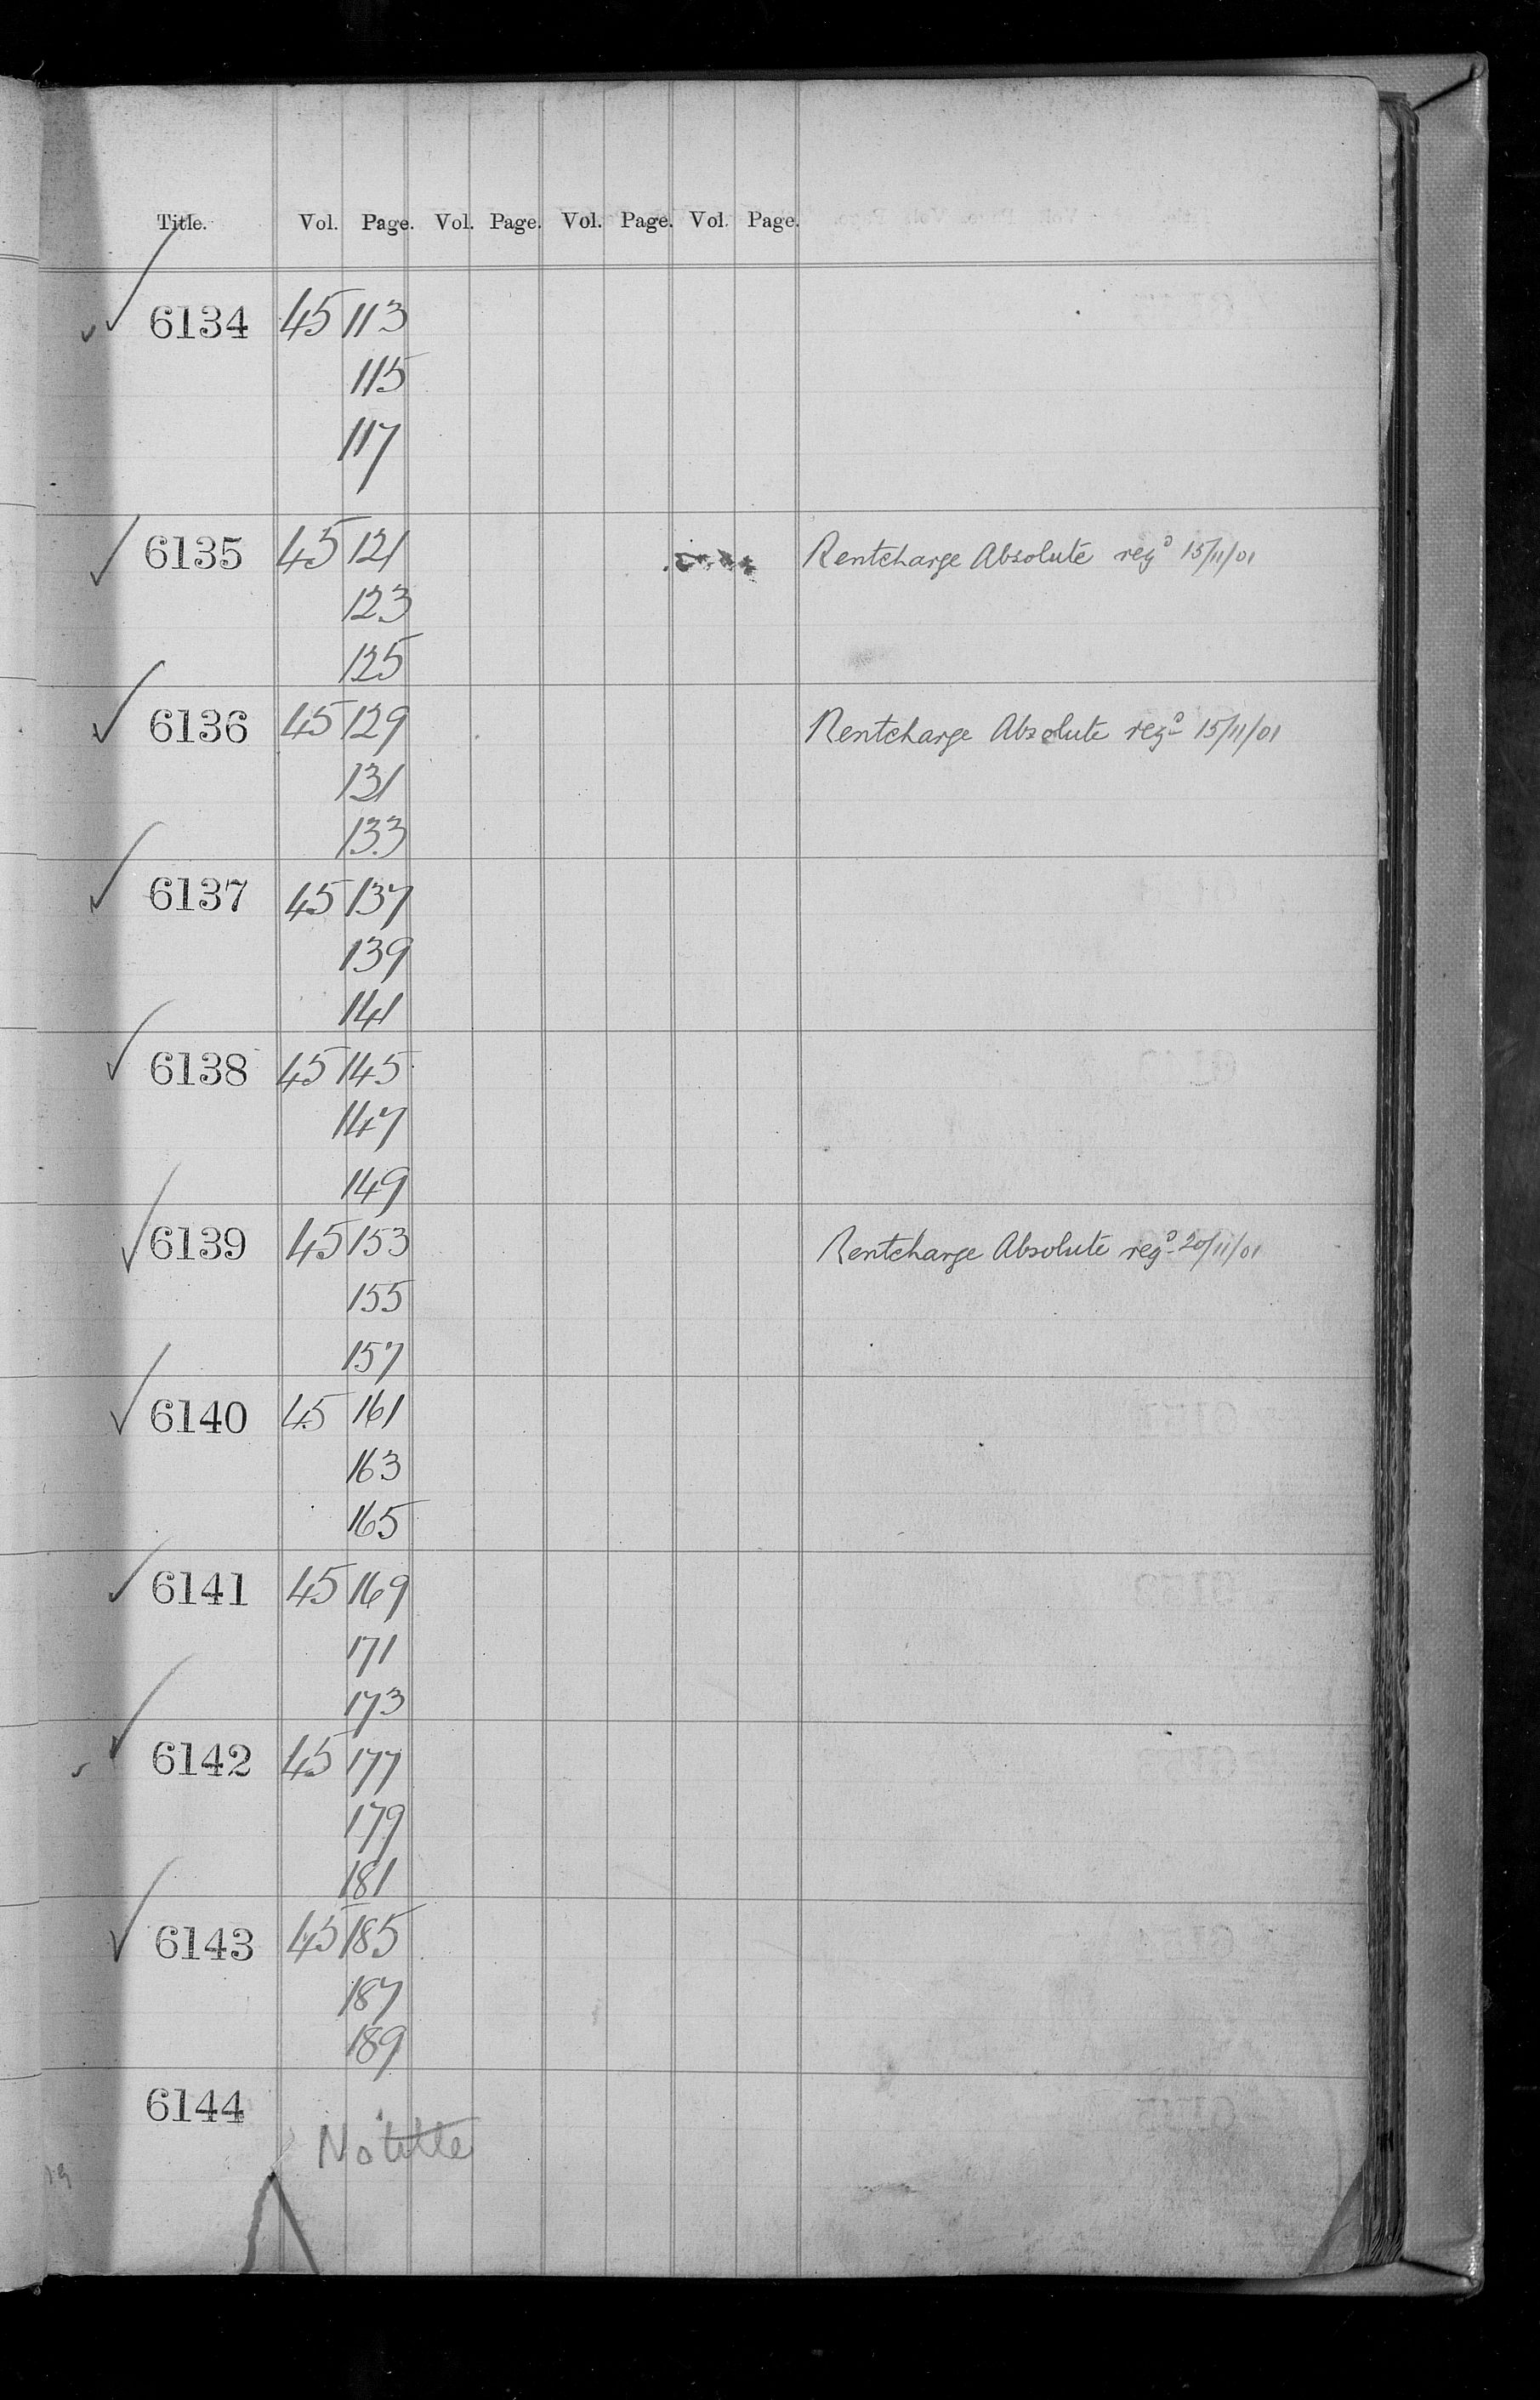 Title. Vol. Page. Vol. Page. Vol. Page. Vol. Page.
6134 45 113
115
117
6135 45 121 Rentcharge Absolute regd 15/11/01
123
125
6136 45 129 Rentcharge Absolute regd 15/11/01
131
133
6137 45 137
139
141
6138 45 145
147
149
6139 45 153 Rentcharge Absolute regd 20/11/01
155
157
6140 45 161
163
165
6141 45 169
171
173
6142 45 177
179
181
6143 45 185
187
189
6144
No title